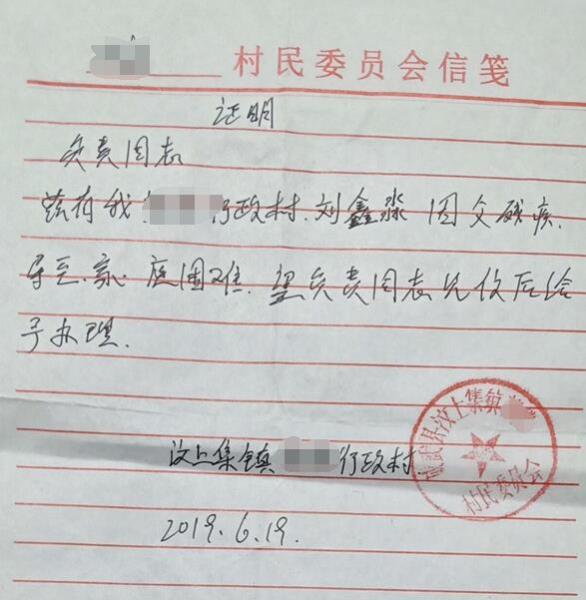 村民委员会信笺
证明
负责同志
兹有我 行政村.刘鑫淼 因父残疾.
导至.家.庭困难.望负责同志见信后给
予办理.
成武县汶上集镇
村民委员会
汶上集镇 行政村.
2019.6.19.